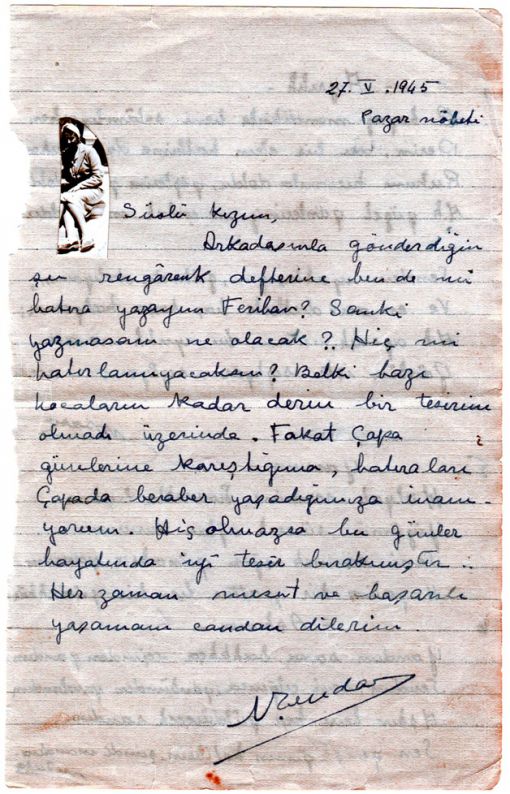 27. V .1945
Pazar nöbeti
Süslü kızım,
Arkadaşınla gönderdiğin
şu rengârenk defterine ben de mi
hatıra yazayım Ferihan? Sanki
yazmasam ne olacak? Hiç mi
hatırlamıyacaksın? Belki bazı
hocaların kadar derin bir tesirim
olmadı üzerinde. Fakat Çapa
günlerine karıştığıma, hatıraları
Çapada beraber yaşadığımıza inanı-
yorum. Hiç olmazsa bu günler
hayatında iyi tesir bırakmıştır..
Her zaman mesut ve başarılı
yaşamanı candan dilerim.